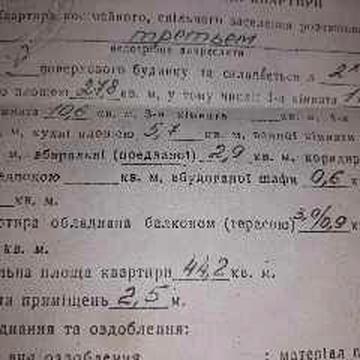 квартири
Квартира комунального, спільного заселення розташована
третьем
непотрібне закреслити
поверхового будинку та складається з 2
площею 27,8 кв. м, у тому числі: 1-а кімната
кімната 10,6 кв. м, 3-я кімната кв. м, 4-а
м, кухні площею 5,7 кв. м, ванної кімнати
м, вбиральні (поєднаної) 2,9 кв. м, коридору
кв. м, вбудованої шафи 0,6
кв. м.
квартира обладнана балконом (терасою) 3,0/0,9
кв. м.
площа квартири 44,2 кв. м.
приміщень 2,5 м.
та оздоблення:
оздоблення : матеріал